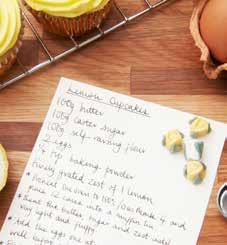 Lemon Cupcakes
100g butter
100g caster sugar
100g self-raising flour
2 eggs
1 tsp baking powder
Finely grated zest of 1 lemon
• Preheat the oven to 180°C/Gas Mark 4 and
place 12 cases into a muffin tin
• Beat the butter sugar and zest until
very light and fluffy
• Add the eggs one at
well before